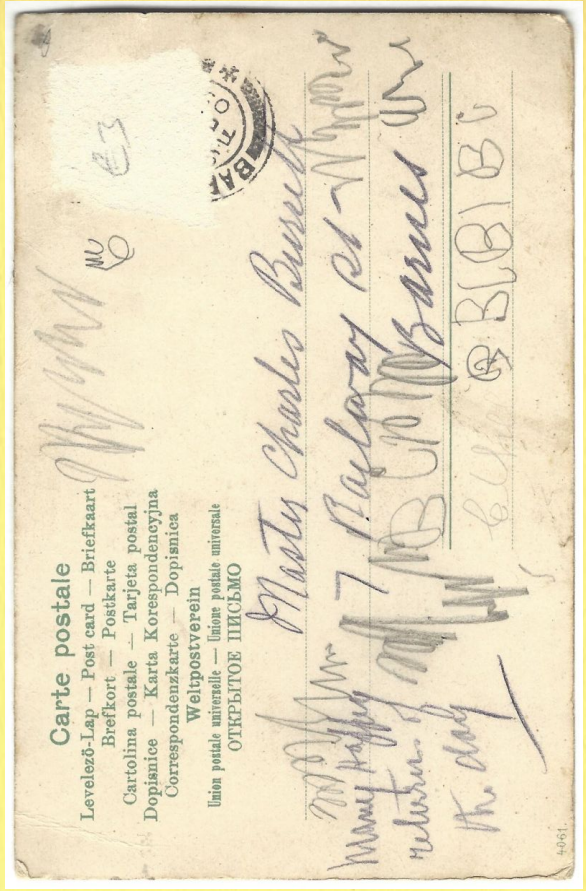 Carte postale
Levelező-Lap — Post card — Briefkaart
Brefkort — Postkarte
Cartolina postale — Tarjeta postal
Dopisnice — Karta Korespondencyjna
Correspondenzkarte — Dopisnica
Weltpostverein
Union postale universelle — Unione postale universale
ОТКРЫТОЕ ПИСЬМО
£3
BAR
Master Charles Bussell
7 Rayleway Rd
Barnes
BLBIBL
Many Happy
returns of
the day
4061.